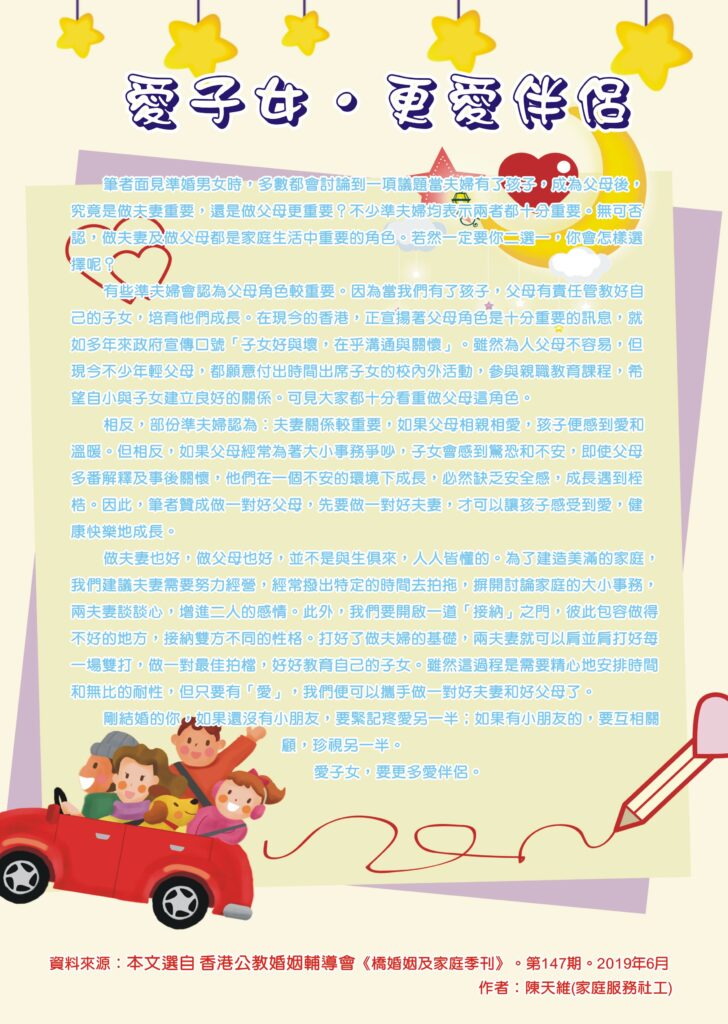 愛子女·更愛伴侶
筆者面見準婚男女時，多數都會討論到一項議題當夫婦有了孩子，成為父母後，
究竟是做夫妻重要，還是做父母更重要？不少準夫婦均表示兩者都十分重要。無可否
認，做夫妻及做父母都是家庭生活中重要的角色。若然一定要你二選一，你會怎樣選
擇呢？
有些準夫婦會認為父母角色較重要。因為當我們有了孩子，父母有責任管教好自
己的子女，培育他們成長。在現今的香港，正宣揚著父母角色是十分重要的訊息，就
如多年來政府宣傳口號「子女好與壞，在乎溝通與關懷」。雖然為人父母不容易，但
現今不少年輕父母，都願意付出時間出席子女的校內外活動，參與親職教育課程，希
望自小與子女建立良好的關係。可見大家都十分看重做父母這角色。
相反，部份準夫婦認為：夫妻關係較重要，如果父母相親相愛，孩子便感到愛和
溫暖。但相反，如果父母經常為著大小事務爭吵，子女會感到驚恐和不安，即使父母
多番解釋及事後關懷，他們在一個不安的環境下成長，必然缺乏安全感，成長遇到桎
梏。因此，筆者贊成做一對好父母，先要做一對好夫妻，才可以讓孩子感受到愛，健
康快樂地成長。
做夫妻也好，做父母也好，並不是與生俱來，人人皆懂的。為了建造美滿的家庭，
我們建議夫妻需要努力經營，經常撥出特定的時間去拍拖，摒開討論家庭的大小事務，
兩夫妻談談心，增進二人的感情。此外，我們要開啟一道「接納」之門，彼此包容做得
不好的地方，接納雙方不同的性格。打好了做夫婦的基礎，兩夫妻就可以肩並肩打好每
一場雙打，做一對最佳拍檔，好好教育自己的子女。雖然這過程是需要精心地安排時間
和無比的耐性，但只要有「愛」，我們便可以攜手做一對好夫妻和好父母了。
剛結婚的你，如果還沒有小朋友，要緊記疼愛另一半；如果有小朋友的，要互相關
顧，珍視另一半。
愛子女，要更多愛伴侶。
資料來源：本文選自 香港公教婚姻輔導會《橋婚姻及家庭季刊》。第147期。2019年6月
作者：陳天維(家庭服務社工)